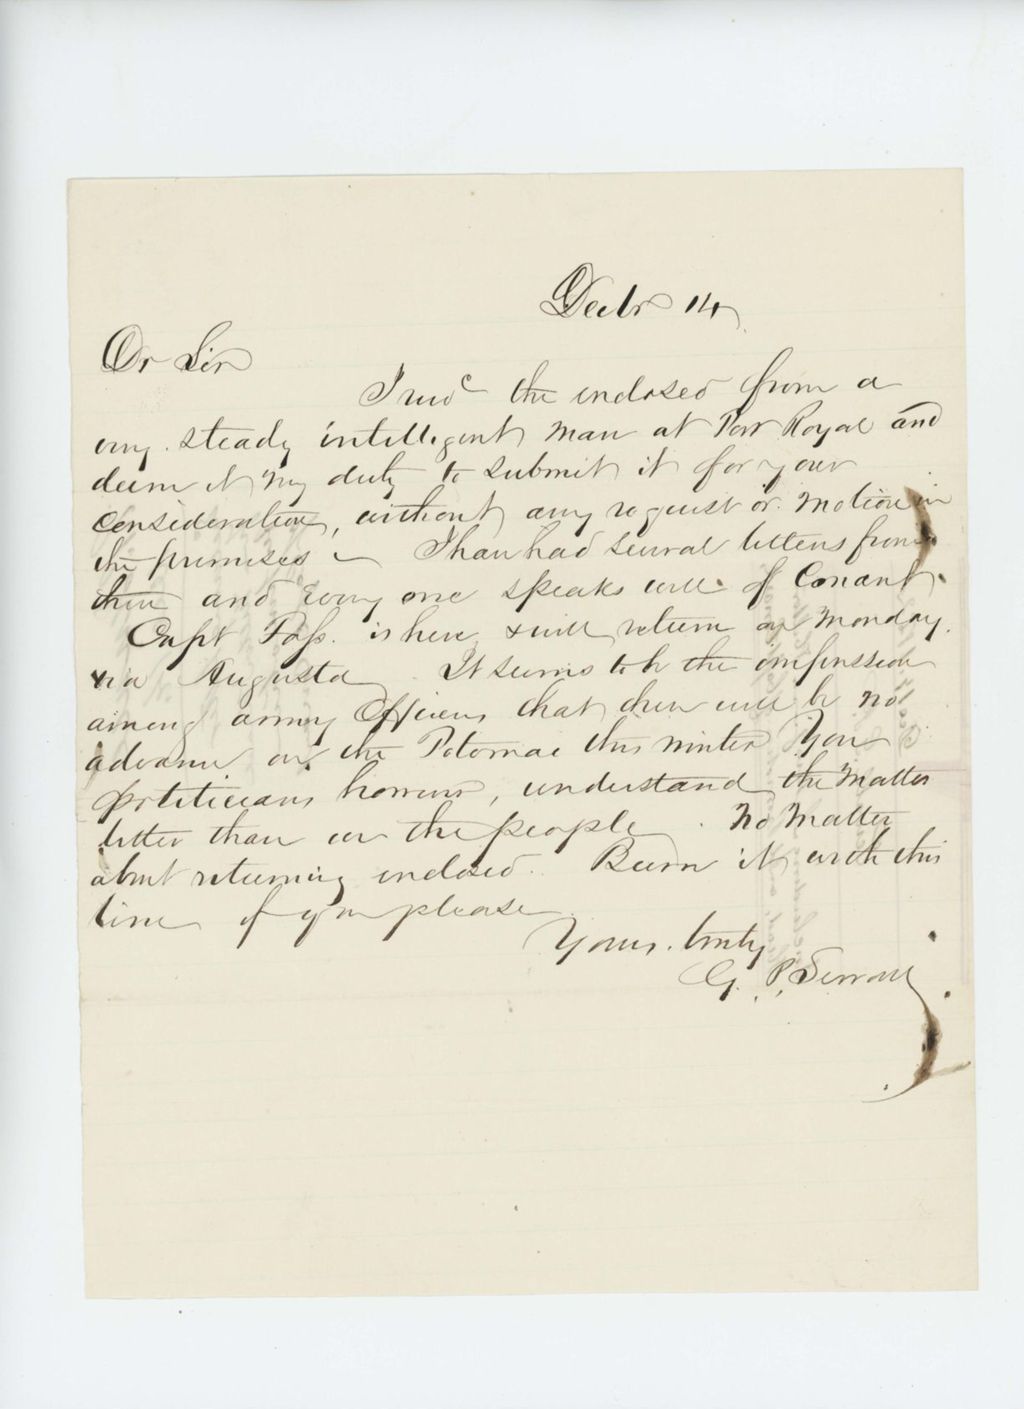 Decbr 14
Dr Sir
I recd the enclosed from a
very steady intelligent man at Port Royal and
deem it my duty to submit it for your
consideration, without any request or motion in
the premises – I have had several letters from
there and Every one speaks well of Conant.
Capt Foss. is here & will return on Monday.
via Augusta. It seems to be the impression
among army Officers that there will be no
advance on the Potomac this winter You
politicians however, understand the matter
better than us the people. No matter
about returning enclosed. Burn it with this
line if you please
Yours. truly
G. P. Sewall